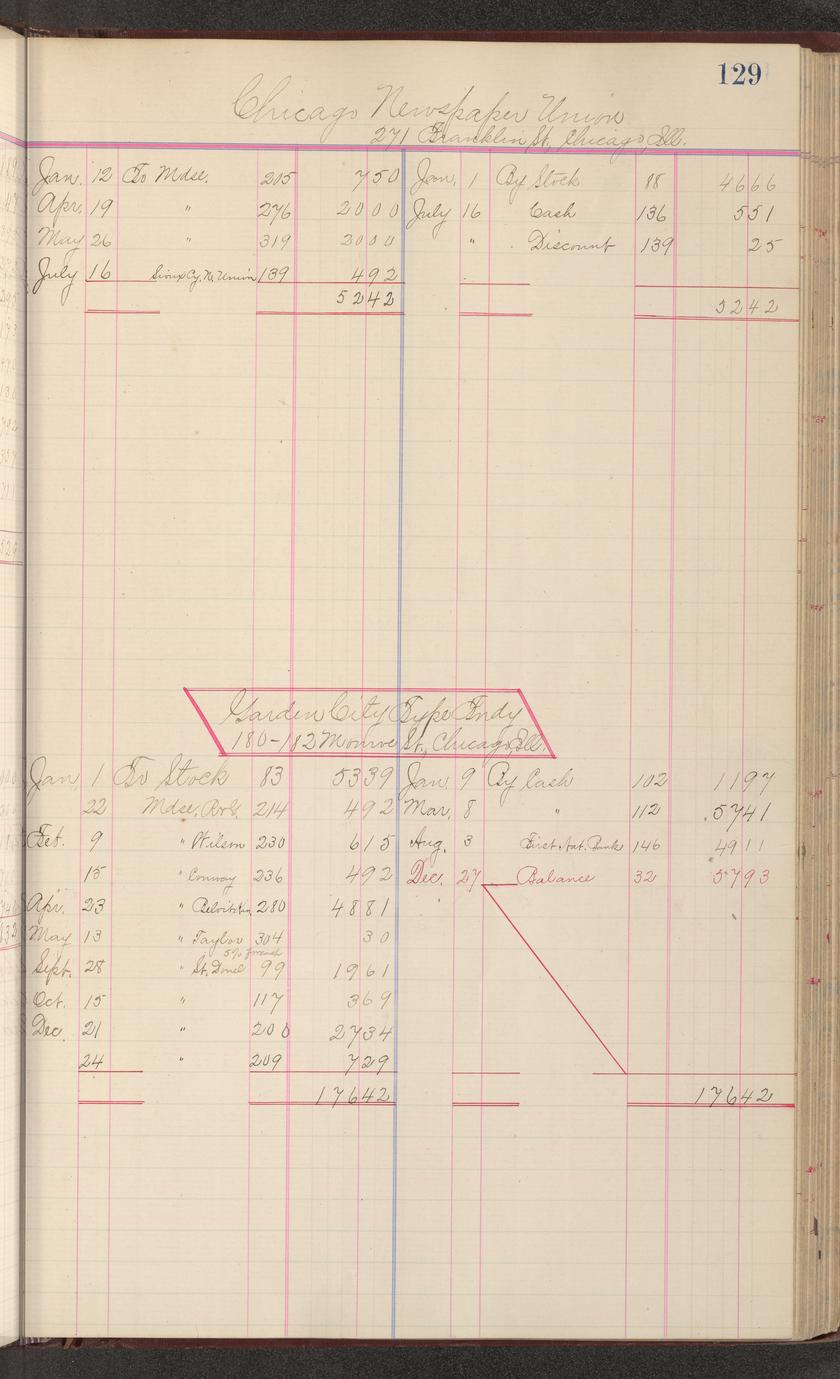 129
Chicago Newspaper Union
271 Franklin St., Chicago, Ill.
Jan. 12 To Mdse. 205 750 Jan. 1 By Stock 88 4666
Apr. 19 " 276 2000 July 16 Cash 136 551
May 26 " 319 2000 " Discount 139 25
July 16 Sioux Cy. N. Union 139 492
5242 5242
Garden City Type Fndy
180-182 Monroe St., Chicago, Ill.
Jan 1 To Stock 83 5339 Jan. 9 By Cash 102 1197
22 Mdse. 214 492 Mar. 8 " 112 5741
Feb. 9 " Wilson 230 615 Aug. 3 First Nat. Bank 146 4911
15 " Conway 236 492 Dec. 27 Balance 32 5793
Apr. 23 " Beloit 280 4881
May 13 " Taylor 304 30
5%
Sept. 28 " St. 99 1961
Oct. 15 " 117 369
Dec. 21 " 200 2734
24 " 209 729
17642 17642